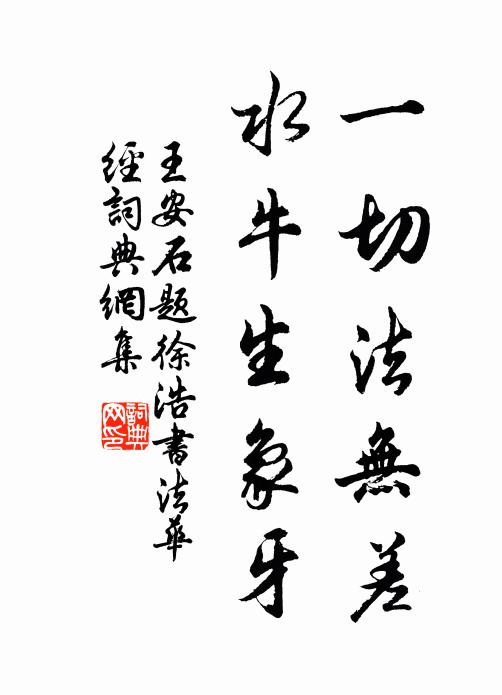 一切法無差
水牛生象牙
王安石題徐浩書法華
經詞典網集
詞典
网印